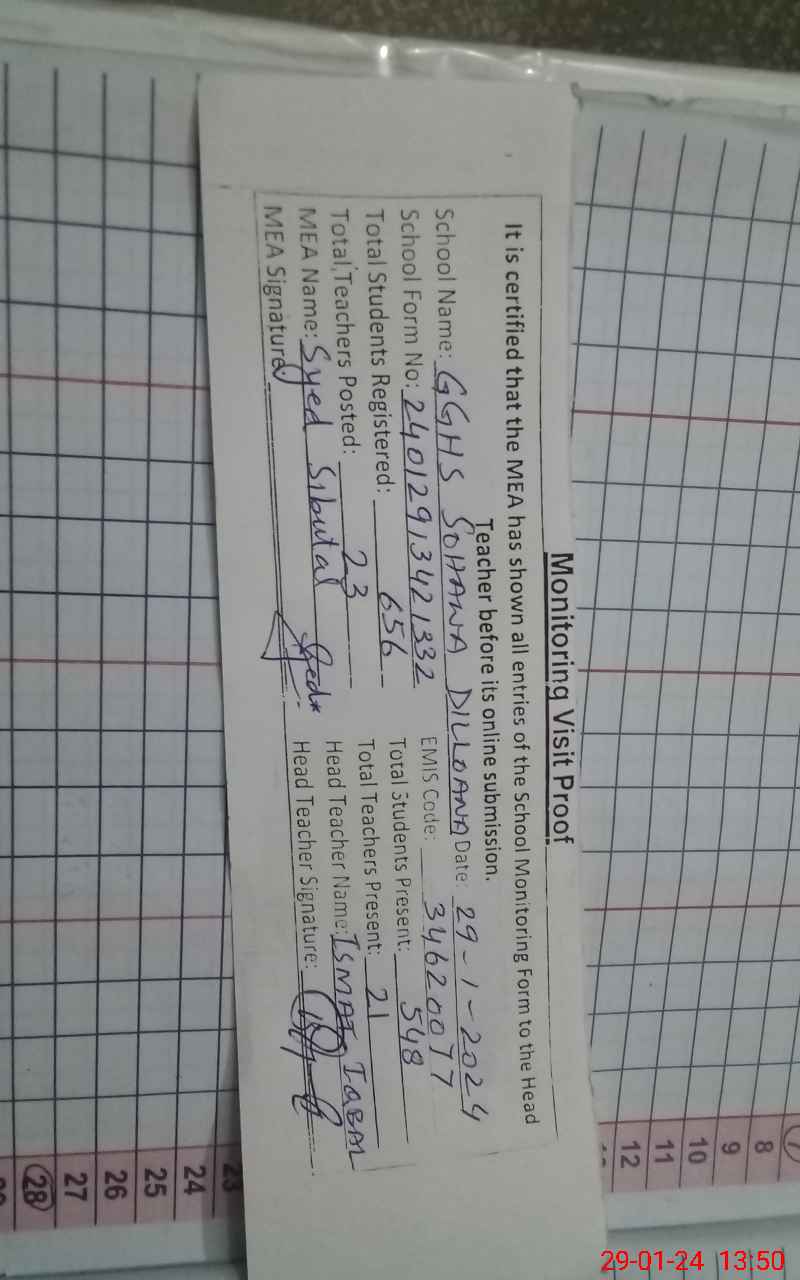 Monitoring Visit Proof
It is certified that the MEA has shown all entries of the School Monitoring Form to the Head
Teacher before its online submission.
School Name: GGHS SOHAWA DILLOANA Date: 29-1-2024
School Form No: 24012913421332 EMIS Code: 34620077
Total Students Registered: 656 Total Students Present: 548
Total Teachers Posted: 23 Total Teachers Present: 21
MEA Name: Syed Sibutal Head Teacher Name: ISMAT IQBAL
MEA Signature: Head Teacher Signature:
7
8
9
10
11
12
23
24
25
26
27
28
29-01-24 13:50